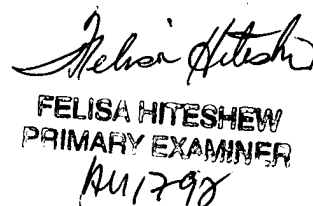 Felisa Hiteshew
FELISA HITESHEW
PRIMARY EXAMINER
AU 1792